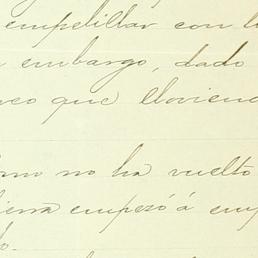 empelillar con l
embargo, dado
que lloviend
no ha vuelto
empezó á emp